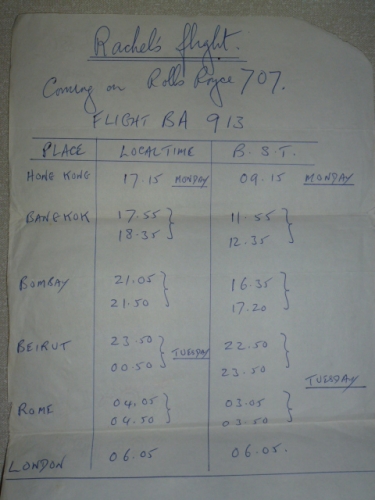 Rachel's flight.
Coming on Rolls Royce 707.
FLIGHT BA 913
PLACE LOCAL TIME B.S.T.
HONG KONG 17.15 MONDAY 09.15 MONDAY
BANGKOK 17.55 11.55
18.35 12.35
BOMBAY 21.05 16.35
21.50 17.20
BEIRUT 23.50 22.50
TUESDAY
00.50 23.50
TUESDAY
ROME 04.05 03.05
04.50 03.50
LONDON 06.05 06.05.